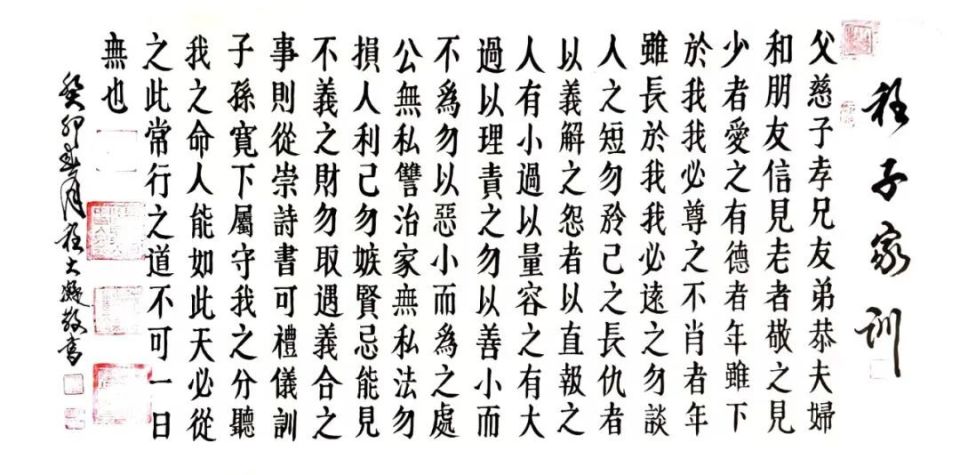 程子家训
父慈子孝兄友弟恭夫婦
和朋友信見老者敬之見
少者愛之有德者年雖下
於我我必尊之不肖者年
雖長於我我必遠之勿談
人之短勿矜己之長仇者
以義解之怨者以直報之
人有小過以量容之有大
過以理責之勿以善小而
不為勿以惡小而為之處
公無私讐治家無私法勿
損人利己勿嫉賢忌能見
不義之財勿取遇義合之
事則從崇詩書可禮儀訓
子孫寬下屬守我之分聽
我之命人能如此天必從
之此常行之道不可一日
無也
癸卯春月程大敬書